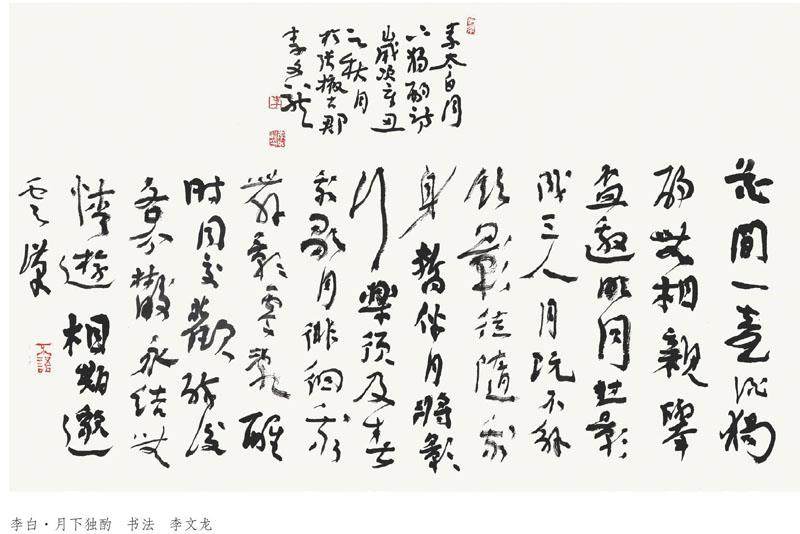 李太白月
下獨酌詩
歲次辛丑
之秋月
於張掖古郡
李文龍
花間一壺酒獨
酌無相親舉
盃邀明月對影
成三人月既不解
飲影徒隨我
身暫伴月將影
行樂須及春
我歌月徘徊我
舞影零亂醒
時同交歡醉後
各分散永結無
情遊相期邈
雲漢
李白·月下独酌　书法　李文龙